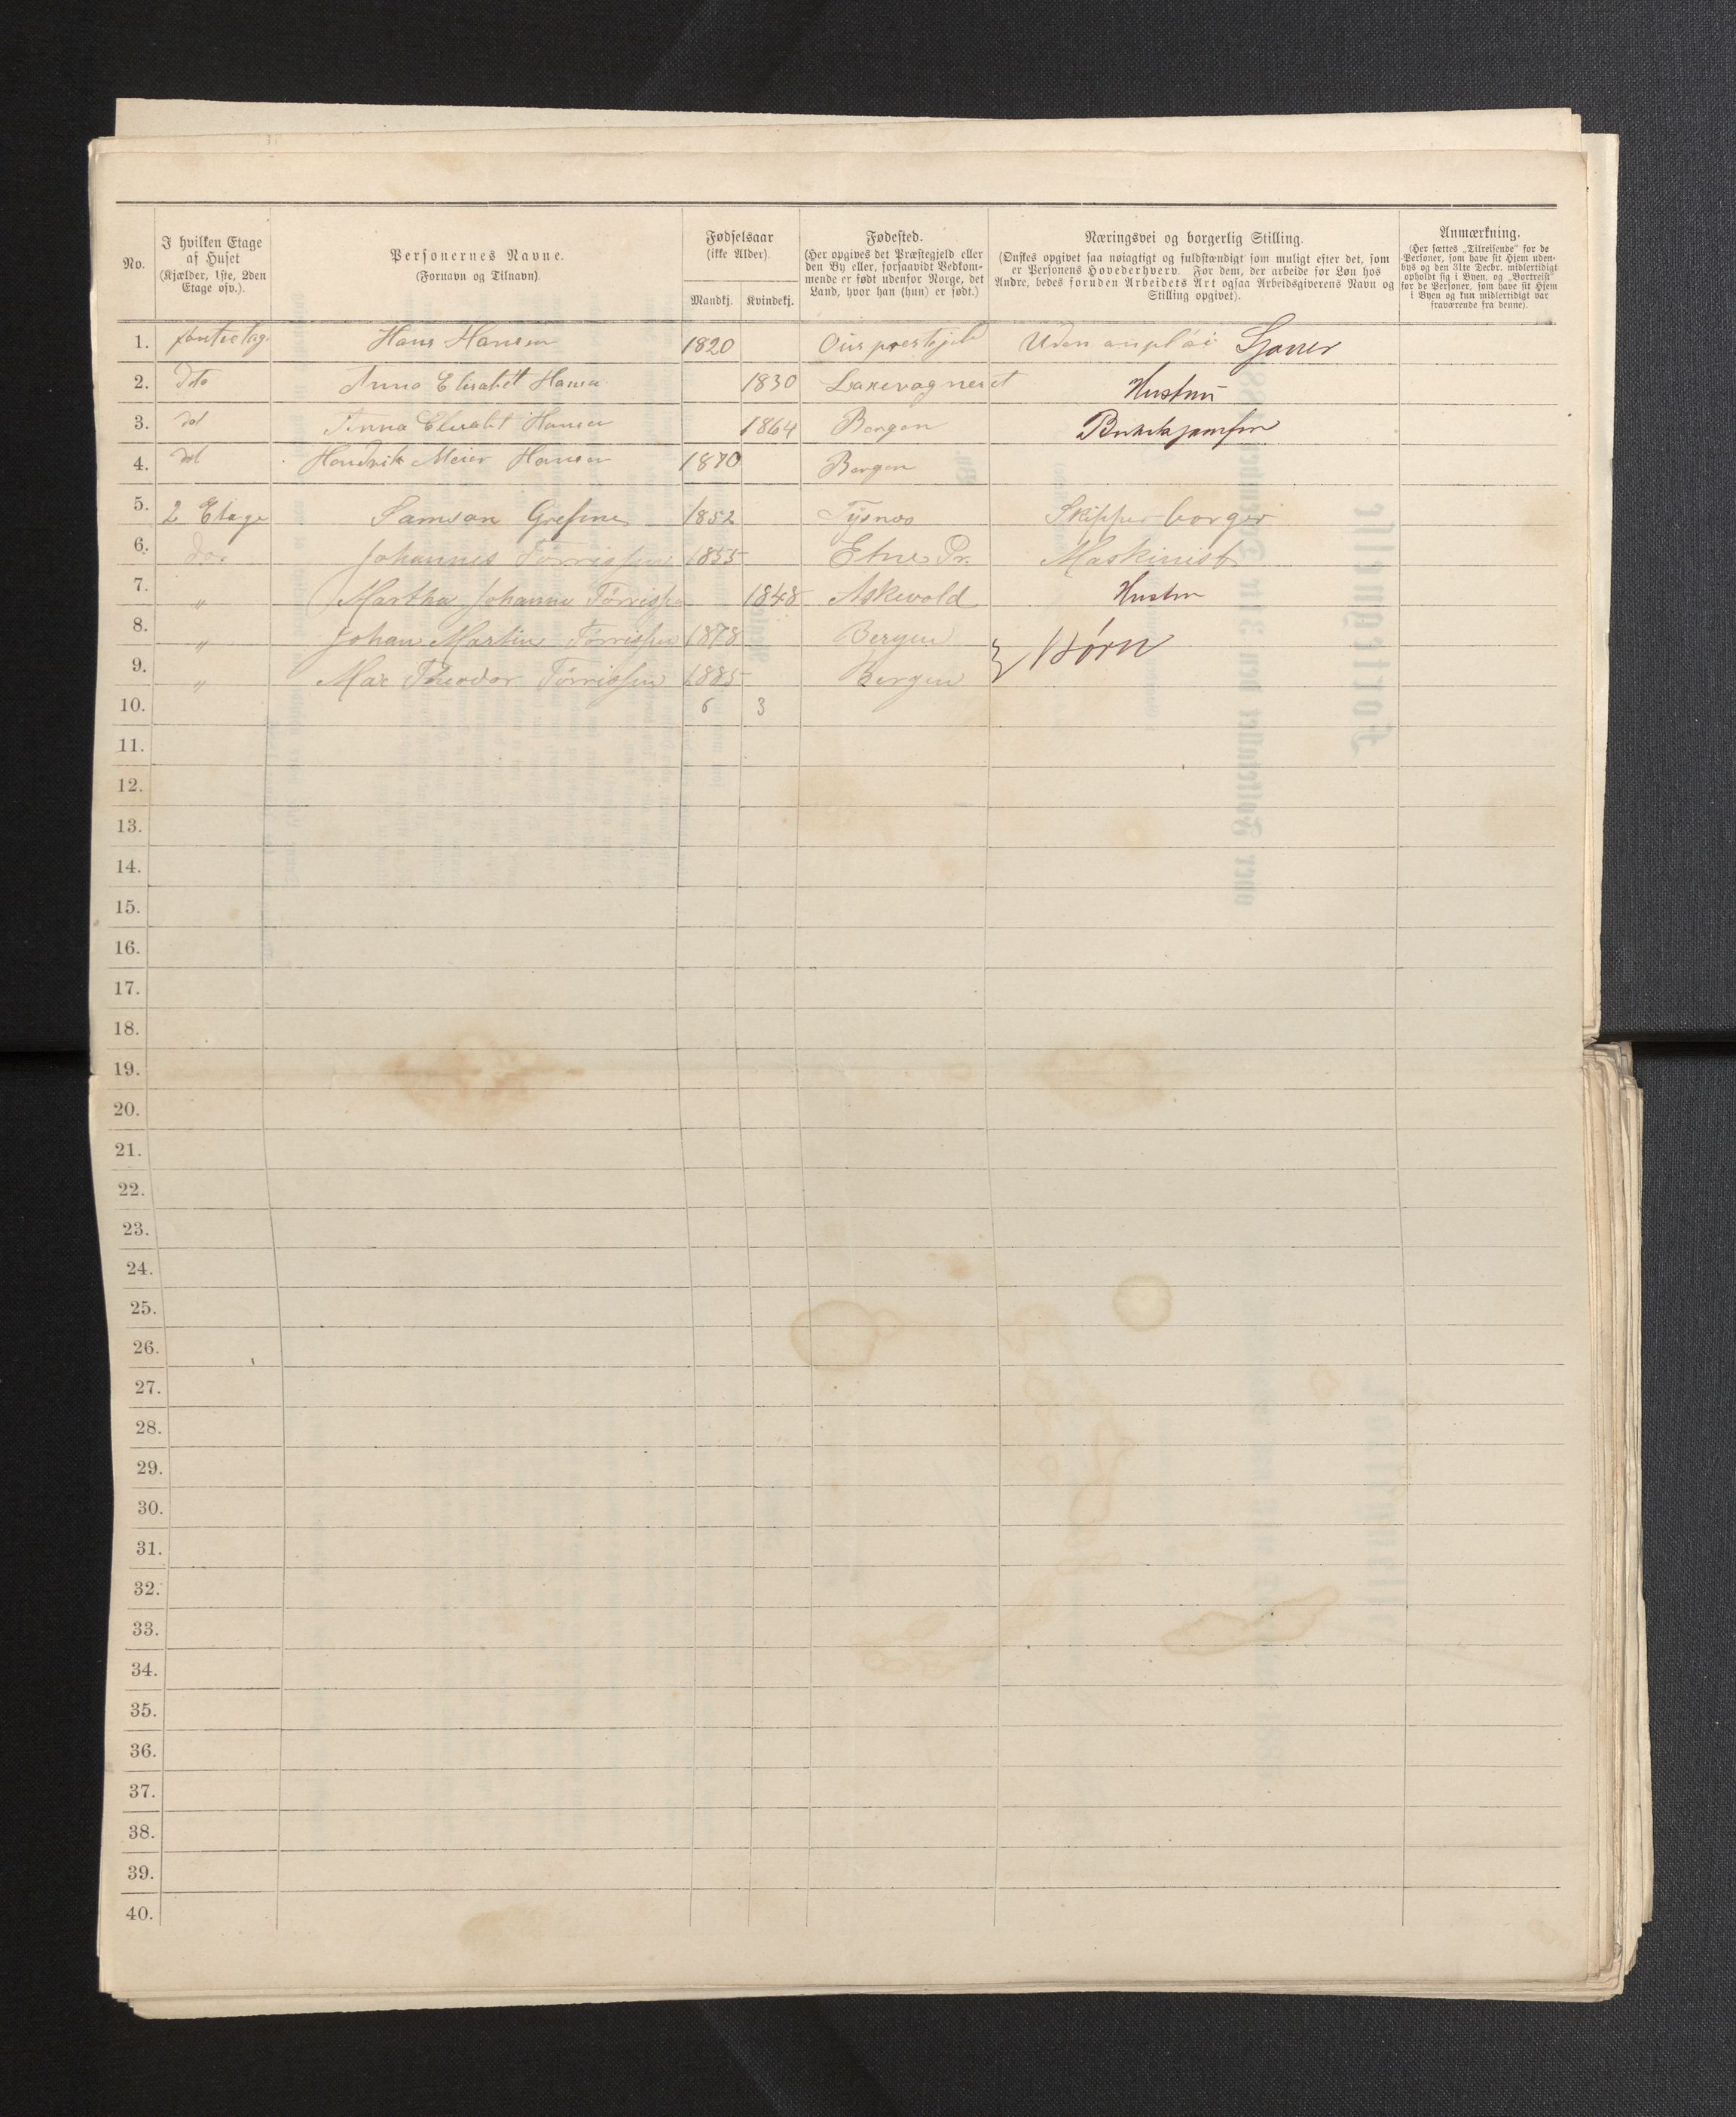 No.
I hvilken Etage af Huset (Kjælder, 1ste, 2den Etage osv.).
Personernes Navne. (Fornavn og Tilnavn)
Fødselsaar (ikke Alder).
Mandkj. Kvindekj.
Fødested. (Her opgives det Præstegjeld eller den By eller, forsaavidt Vedkommende er født udenfor Norge, det Land, hvor han (hun) er født.)
Næringsvei og borgerlig Stilling. (Ønskes opgivet saa nøiagtigt og fuldstændigt som muligt efter det, som er Personens Hovederhverv. For dem, der arbeide for Løn hos Andre, bedes foruden Arbeidets Art ogsaa Arbeidsgiverens Navn og Stilling opgivet).
Anmærkning. (Her sættes „Tilreisende“ for de Personer, som have sit Hjem udenbys og den 31te Decbr. midlertidigt opholdt sig i Byen, og „Bortreist“ for de Personer, som have sit Hjem i Byen og kun midlertidigt var fraværende fra denne).
1. Hans Hansen 1820 Uden
2. Dto Anna Elisabett Hansen 1830 Laxevagneset Hustru
3. dot Anna Elisabt Hansen 1864 Bergen
4. dot Hendrik Meier Hansen 1870 Bergen
5. 2 Etage Samson 1852 Tysnæs Skipperborger
6. do. Johannes Tørrissen 1855 Etne Pr. Maskinist
7. „ Martha Johanne Tørrissen 1848 Askevold Hustru
8. „ Johan Martin Tørrissen 1878 Bergen } Børn
9. „ Max Theodor Tørrissen 1885 Bergen
10. 6 3
11.
12.
13.
14.
15.
16.
17.
18.
19.
20.
21.
22.
23.
24.
25.
26.
27.
28.
29.
30.
31.
32.
33.
34.
35.
36.
37.
38.
39.
40.